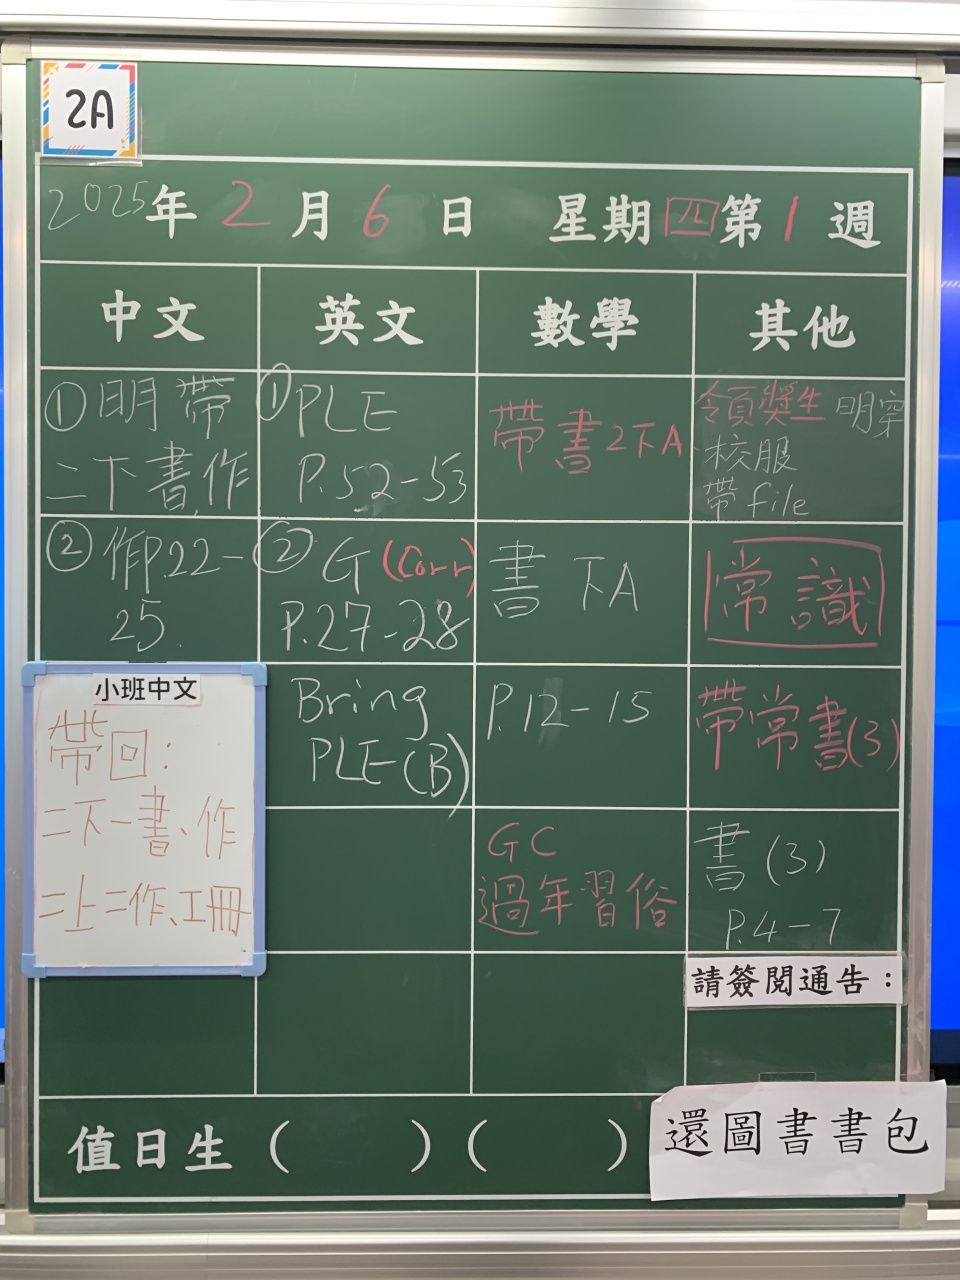 2A
2025年 2月 6日 星期四 第1週
中文 英文 數學 其他
①明帶
二下書,作
②作P.22-
25.
小班中文
帶回:
二下一書、作
二上二作、工冊
①PLE
P.52-53
②G (Corr)
P.27-28
Bring
PLE(B)
帶書2下A
書 下A
P.12-15
GC
過年習俗
領獎生明穿
校服
帶file
常識
帶常書(3)
書(3)
P.4-7
請簽閱通告:
值日生( )( )
還圖書書包